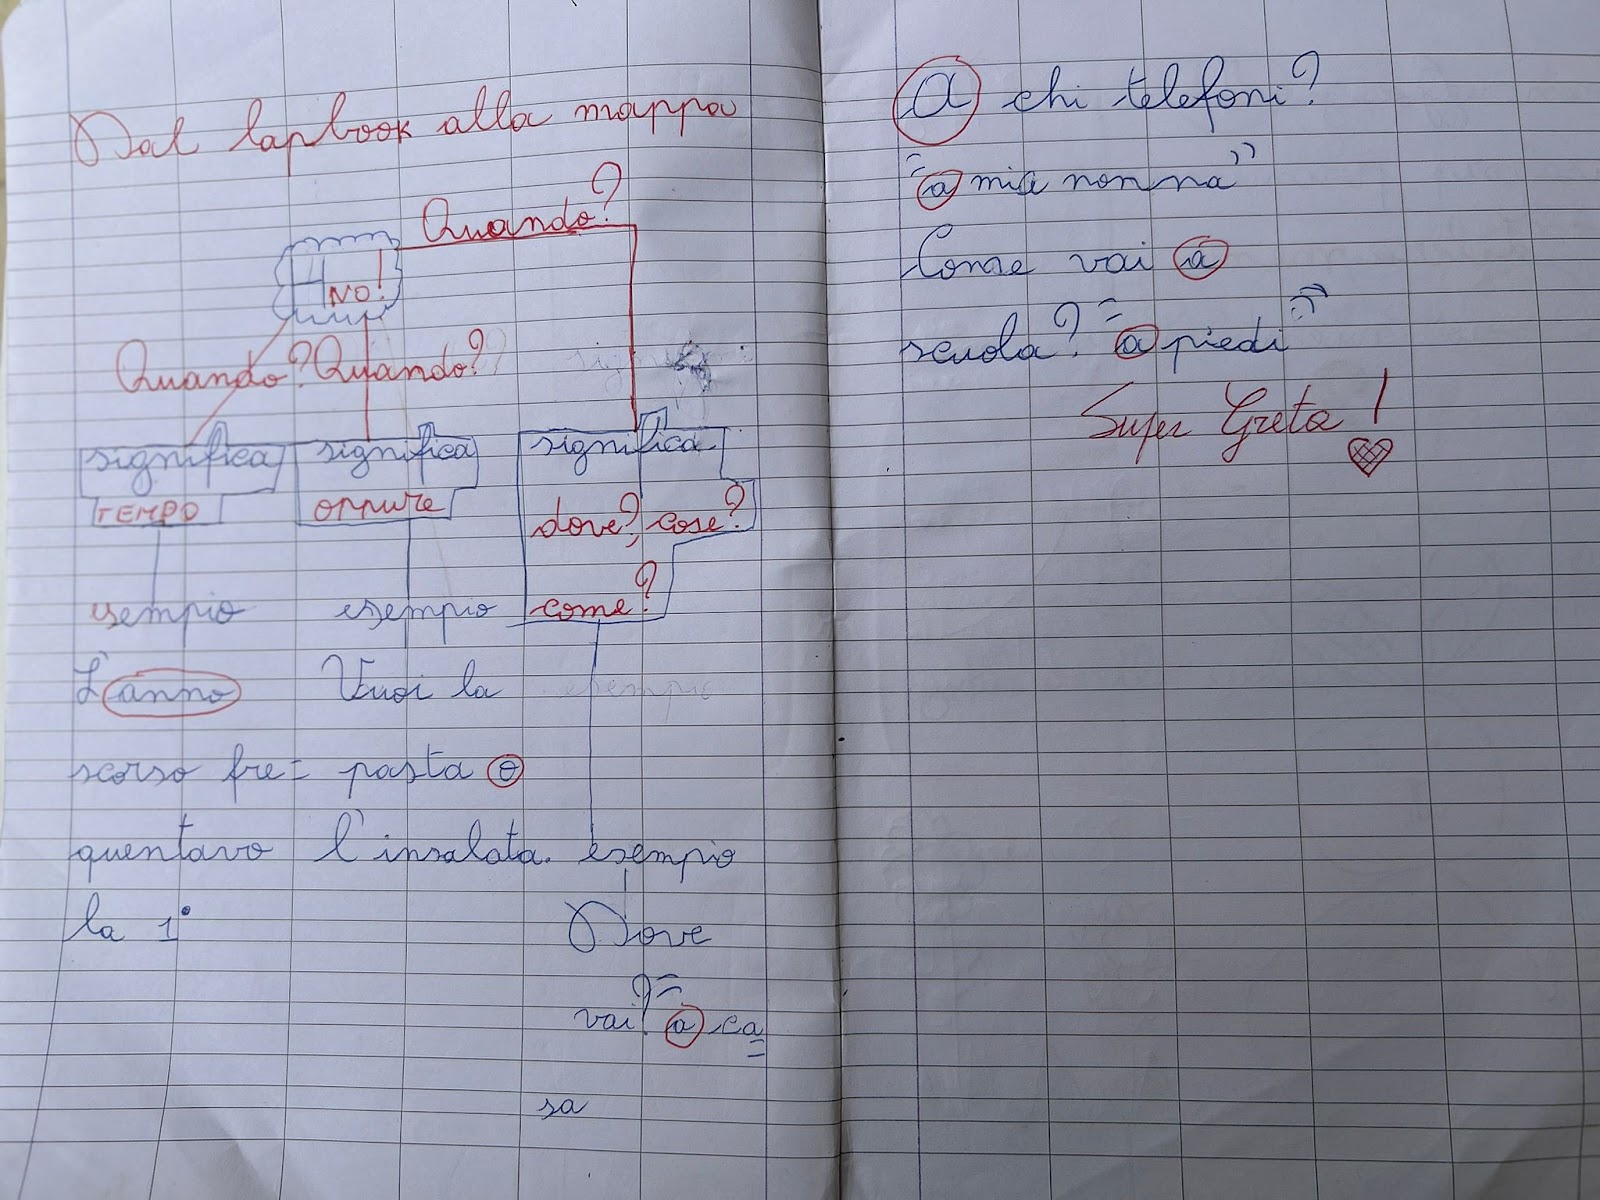 Dal lapbook alla mappa
Quando?
H NO!
Quando? Quando?
significa
TEMPO
esempio
L'anno
scorso fre=
quentavo
la 1°
significa
oppure
esempio
Vuoi la
pasta o
l'insalata.
significa
dove? cose?
come?
esempio
esempio
Dove
vai? "a ca
=
sa
A chi telefoni?
"a mia nonna"
Come vai a
scuola? "a piedi"
Super Greta!